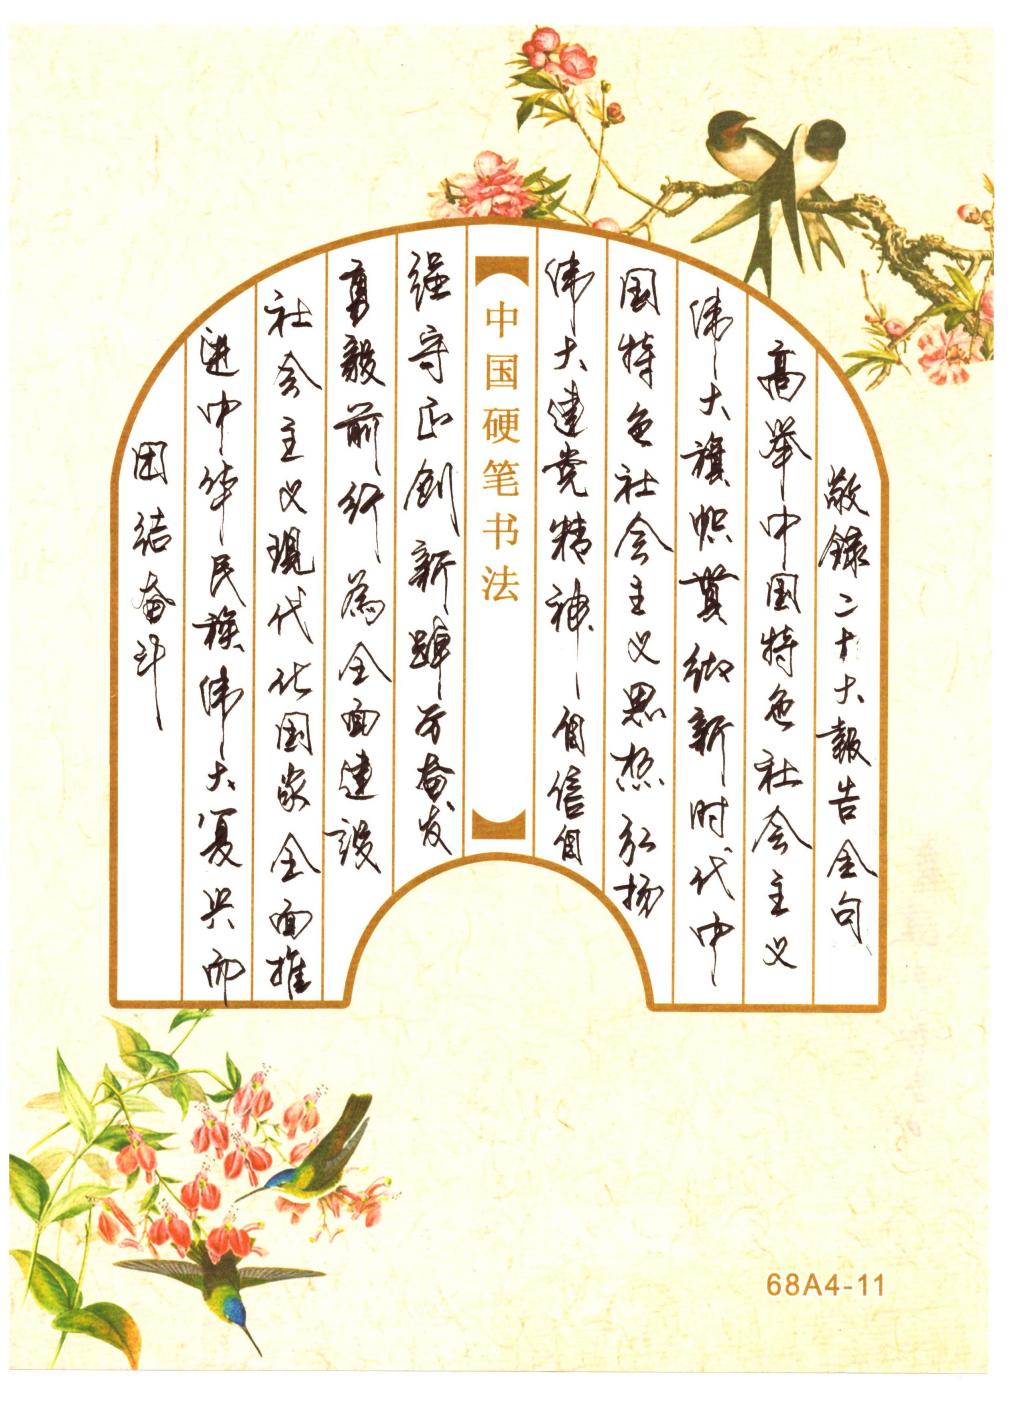 敬録二十大報告金句
高举中国特色社会主义
伟大旗帜貫彻新时代中
国特色社会主义思想弘扬
伟大建党精神自信自
中国硬笔书法
强守正创新踔厉奋发
勇毅前行為全面建設
社会主义現代化国家全面推
进中华民族伟大复兴而
团结奋斗
68A4-11